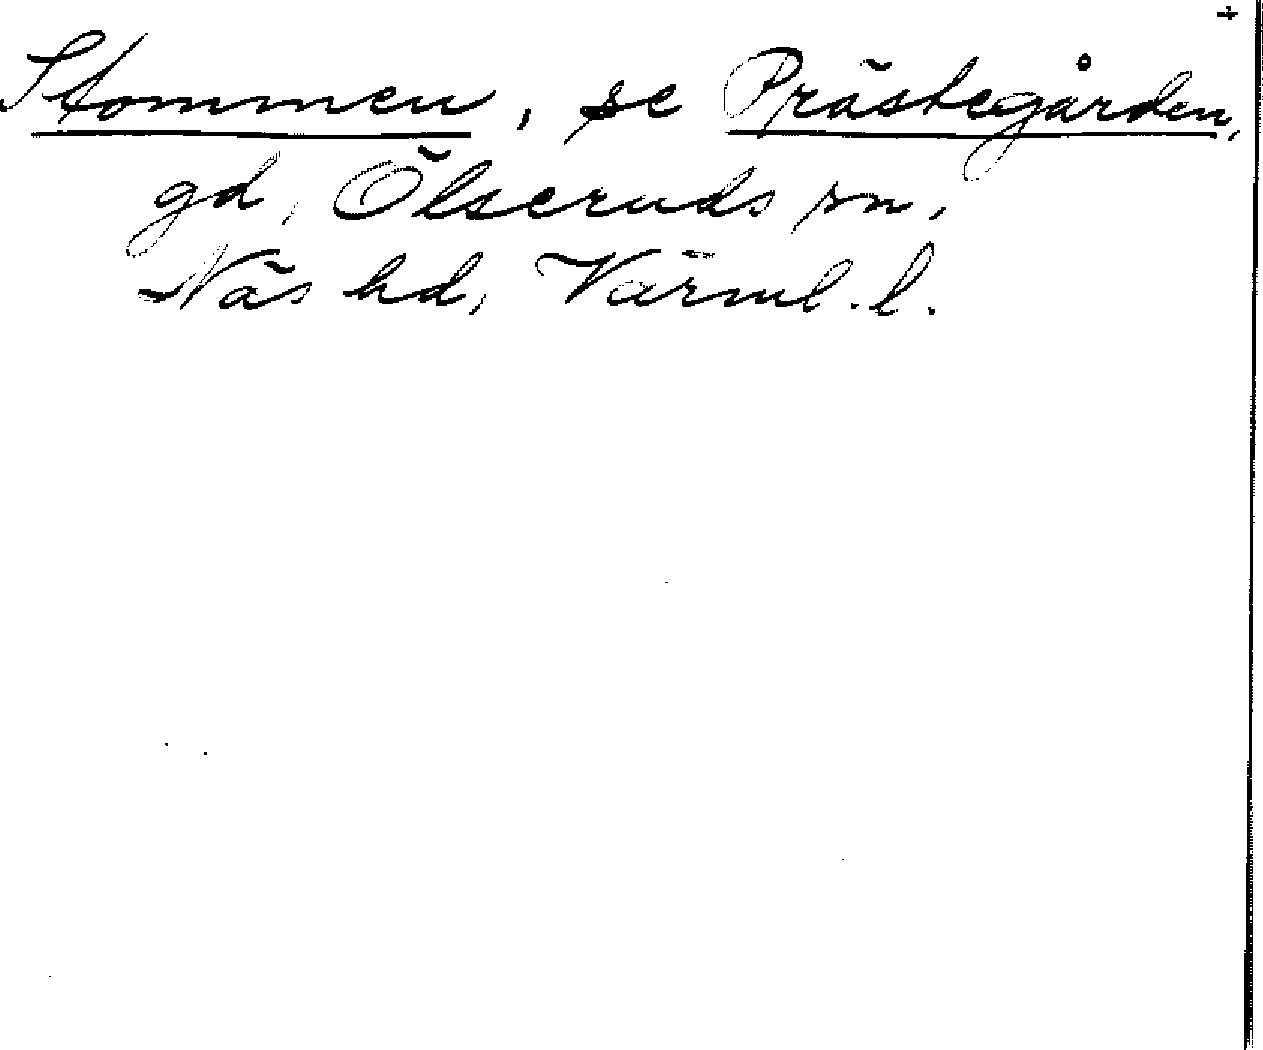 +
Stommen, se Prästegården,
gd, Ölseruds sn,
Näs hd, Värml. l.